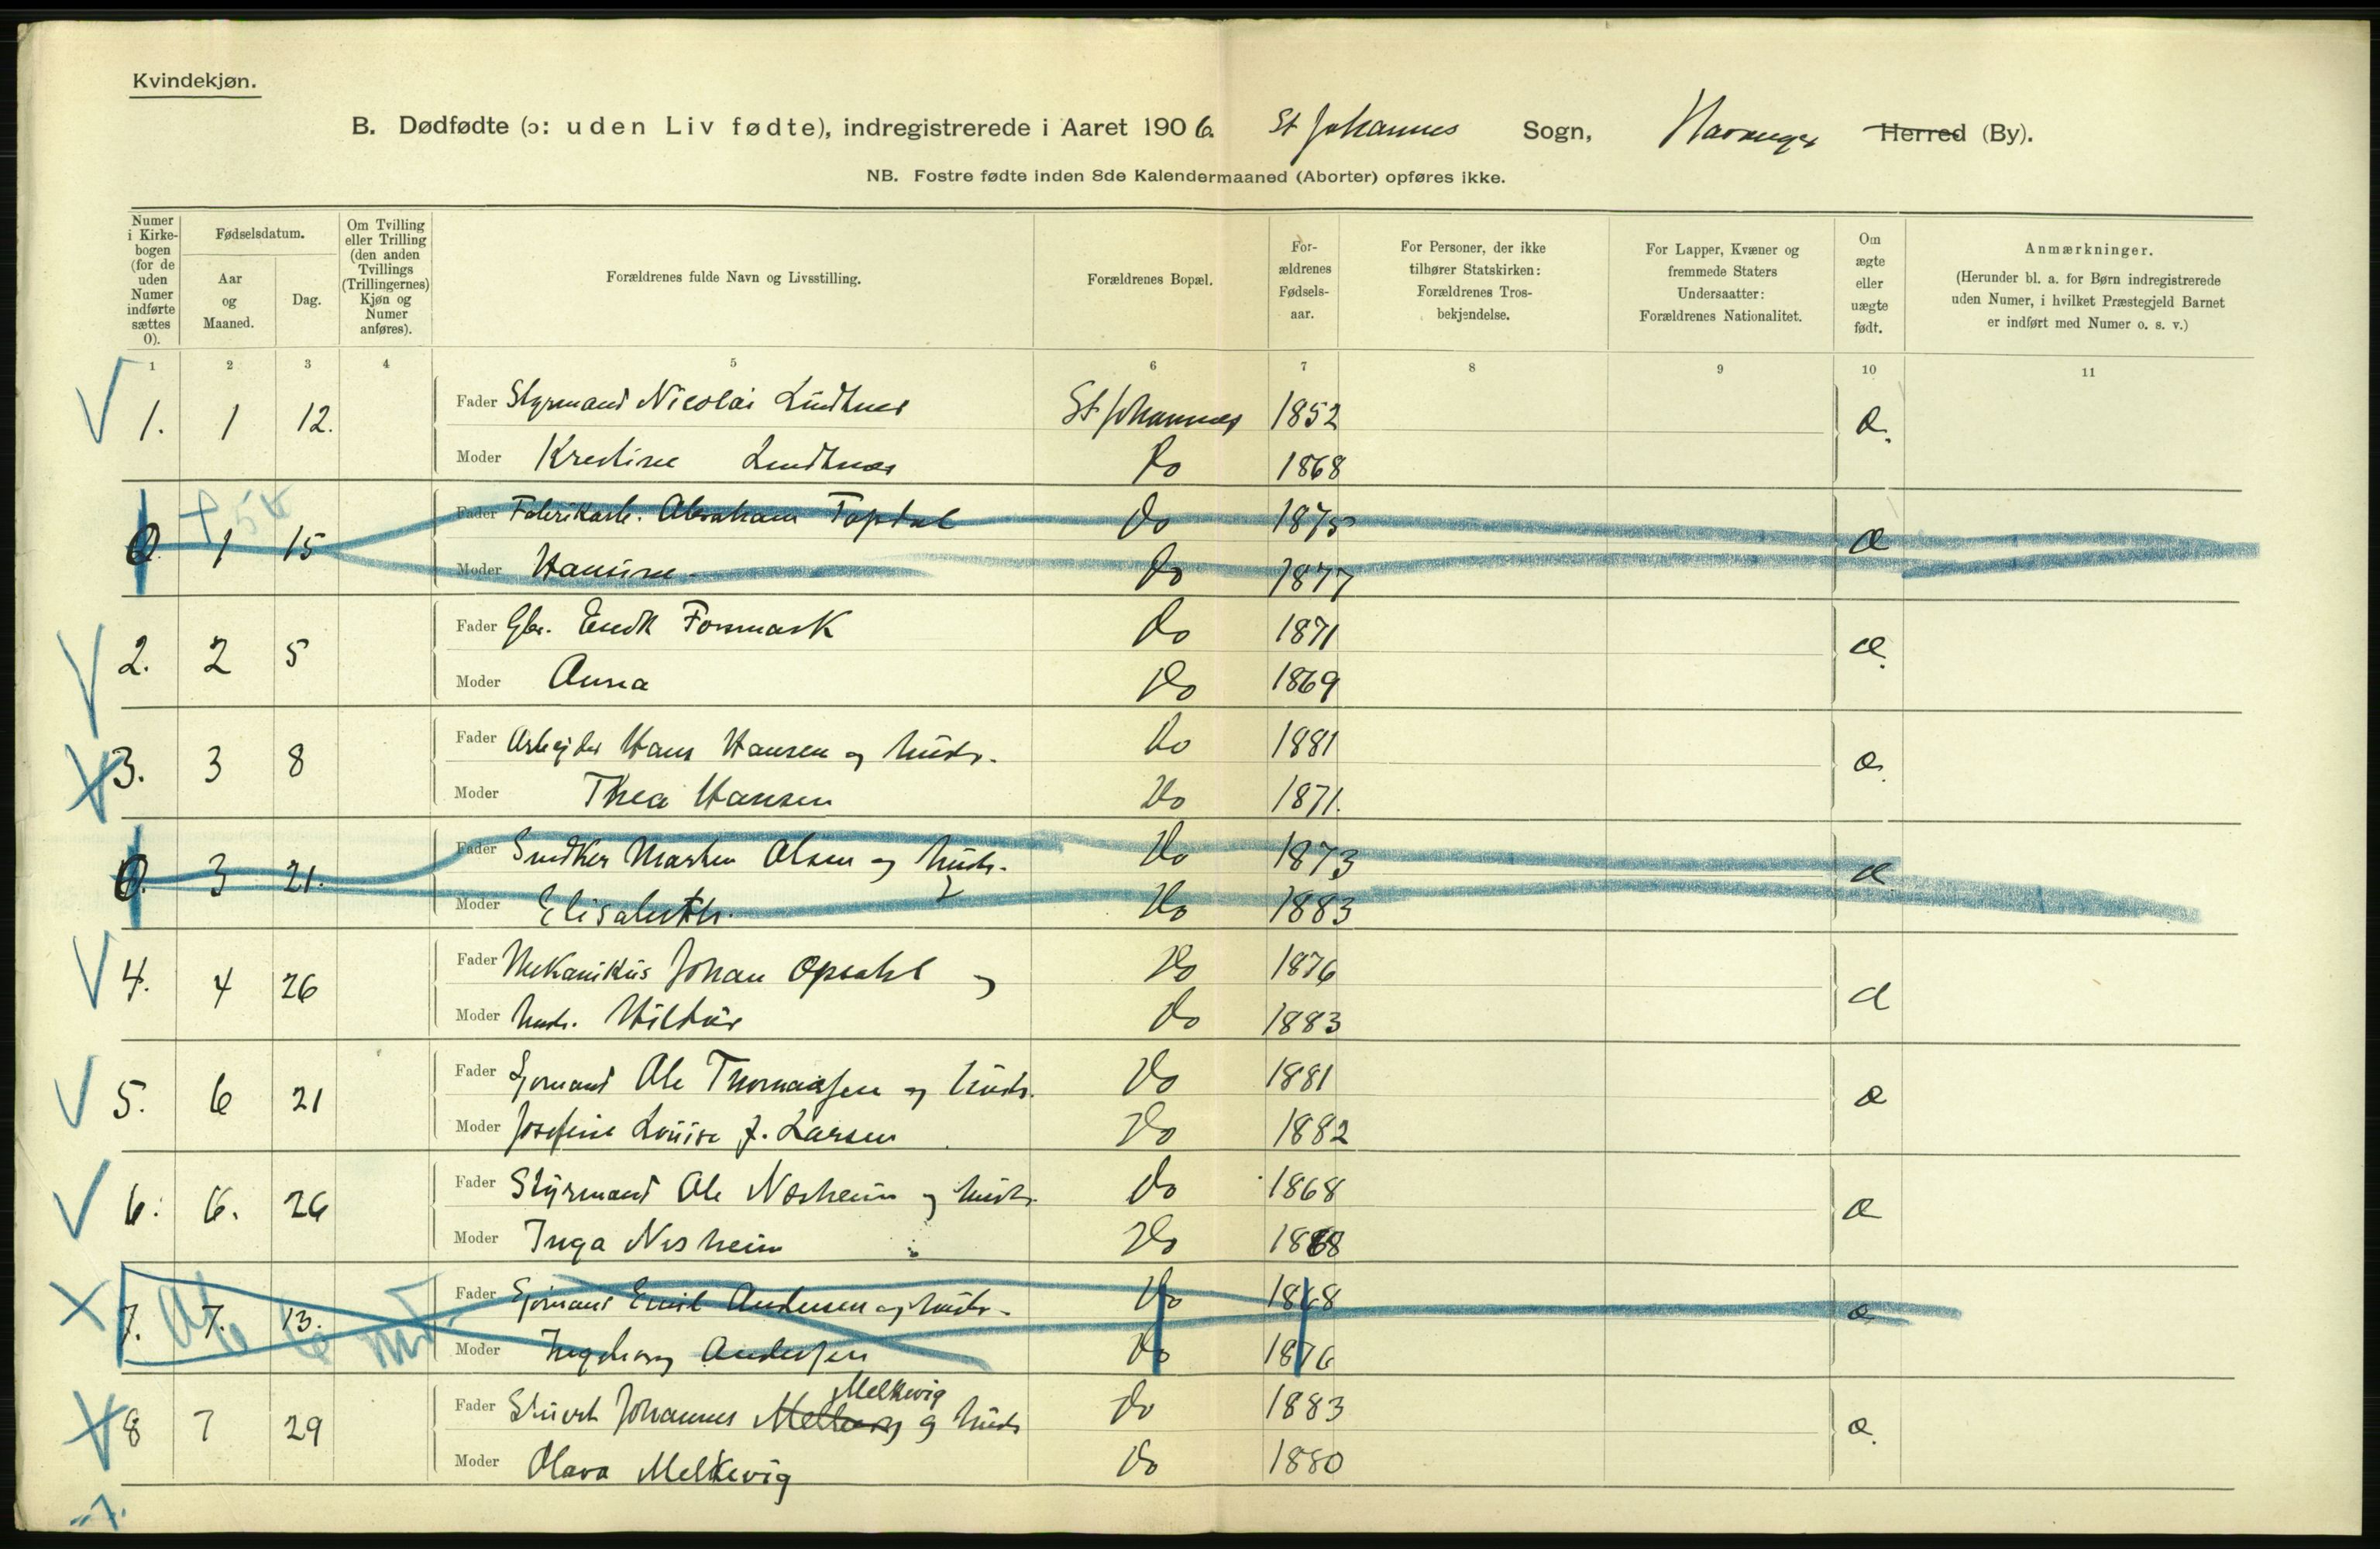 Kvindekjøn.
B. Dødfødte (ɔ: uden Liv fødte), indregistrerede i Aaret 1906. St Johannes Sogn, Herred (By).
NB. Fostre fødte inden 8de Kalendermaaned (Aborter) opføres ikke.
Numer i Kirke-bogen (for de uden Numer indførte sættes 0).
Fødselsdatum.
Aar og Maaned.
Dag.
Om Tvilling eller Trilling (den anden Tvillings (Trillingernes) Kjøn og Numer anføres).
Forældrenes fulde Navn og Livsstilling.
Forældrenes Bopæl.
For-ældrenes Fødsels-aar.
For Personer, der ikke tilhører Statskirken: Forældrenes Tros-bekjendelse.
For Lapper, Kvæner og fremmede Staters Undersaatter: Forældrenes Nationalitet.
Om ægte eller uægte født.
Anmærkninger.
(Herunder bl. a. for Børn indregistrerede uden Numer, i hvilket Præstegjeld Barnet er indført med Numer o. s. v.)
1 2 3 4 5 6 7 8 9 10 11
1. 1 12. Fader Styrmand Nicolai St Johannes 1852 æ.
Moder Kristine Do 1868
0. 1 15 Fader Abraham Topdal Do 1875 æ
Moder Hansine Do 1877
2. 2 5 Fader Gbr. Forsmark Do 1871 æ.
Moder Anna Do 1869
3. 3 8 Fader Arbejder Hans Hansen og Hustr. Do 1881 æ.
Moder Thea Hansen Do 1871.
0. 3 21. Fader Snedker Martin Olsen og Hustr. Do 1873 æ
Moder Elisabeth. Do 1883
4. 4 26 Fader Mekanikus Johan Opsahl og Do 1876 æ
Moder Hustr. Do 1883
5. 6 21 Fader Sjømand Ole Thomassen og Hustr. Do 1881 æ
Moder Josefine Louise f. Larsen Do 1882
6. 6. 26 Fader Styrmand Ole Nesheim og Hustr. Do 1868 æ
Moder Inga Nesheim Do 1868
7. 7. 13. Fader Sjømand Emil Andersen og Hustr. Do 1868 æ
Moder Ingeborg Andersen Do 1876
8 7 29 Fader Stuert Johannes Melkevig og Hustr Do 1883 æ.
Moder Olava Melkevig Do 1880